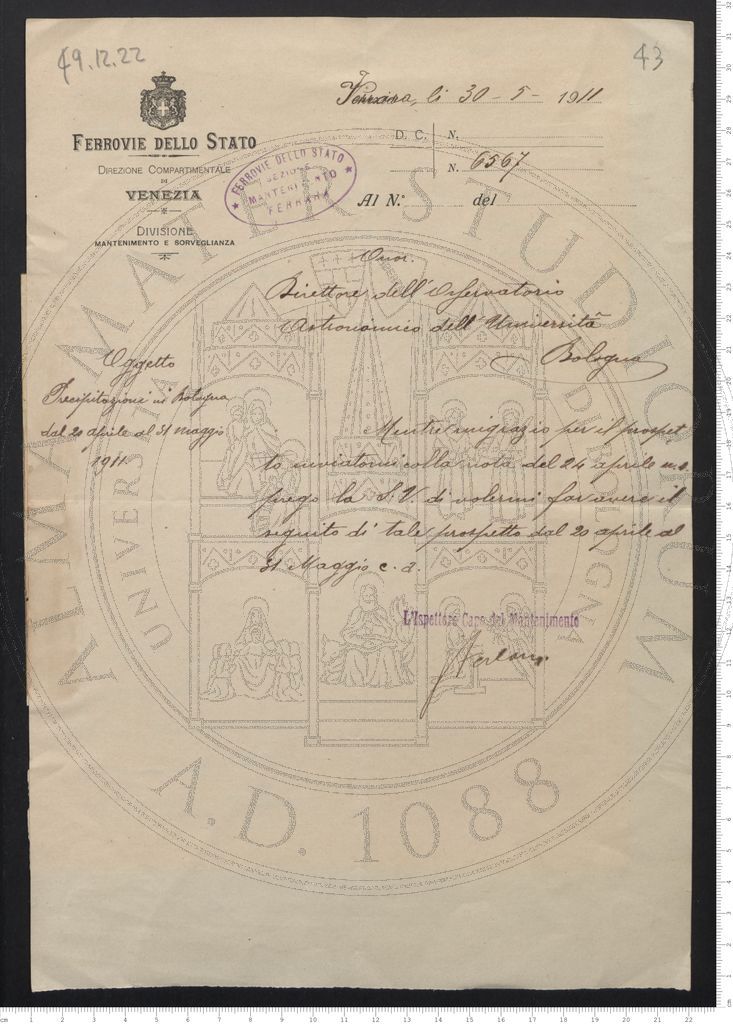 49.12.22
43
Ferrara, li 30 - 5 - 1911
FERROVIE DELLO STATO
DIREZIONE COMPARTIMENTALE
DI
VENEZIA
DIVISIONE
MANTENIMENTO E SORVEGLIANZA
D. C. N.
N. 6567
Al N.° del
★ FERROVIE DELLO STATO ★
SEZIONE
MANTENIMENTO
FERRARA
Onor.
Direttore dell'Osservatorio
Astronomico dell'Università
Bologna
Oggetto
Precipitazioni in Bologna
dal 20 aprile al 31 maggio
1911
Mentre ringrazio per il prospet
to inviatomi colla nota del 24 aprile u.s.
prego la S.V. di volermi far avere il
seguito di tale prospetto dal 20 aprile al
31 Maggio c. a.
L'Ispettore Capo del Mantenimento
ALMA MATER STUDIORUM
UNIVERSITÀ DI BOLOGNA
A.D. 1088